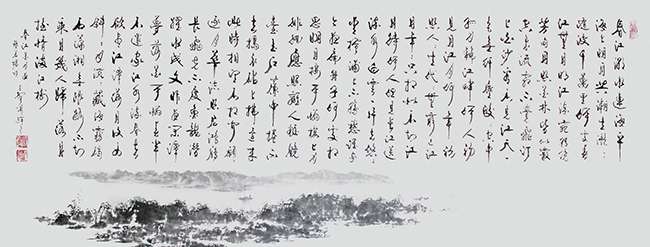 春江潮水連海平
海上明月共潮生灩灩
隨波千萬里何處春
江無月明江流宛轉繞
芳甸月照花林皆似霰
空裏流霜不覺飛汀
上白沙看不見江天一
色無纖塵皎皎空中
孤月輪江畔何人初
見月江月何年初
照人人生代代無窮已江
月年年只相似不知江
月待何人但見長江送
流水白雲一片去悠悠
青楓浦上不勝愁誰家
今夜扁舟子何處相
思明月樓可憐樓上月
徘徊應照離人妝鏡
臺玉戶簾中捲不
去擣衣砧上拂還來
此時相望不相聞願
逐月華流照君鴻雁
長飛光不度魚龍潛
躍水成文昨夜閒潭
夢落花可憐春半
不還家江水流春去
欲盡江潭落月復西
斜斜月沉沉藏海霧碣
石瀟湘無限路不知
乘月幾人歸落月
搖情滿江樹
春江花月夜